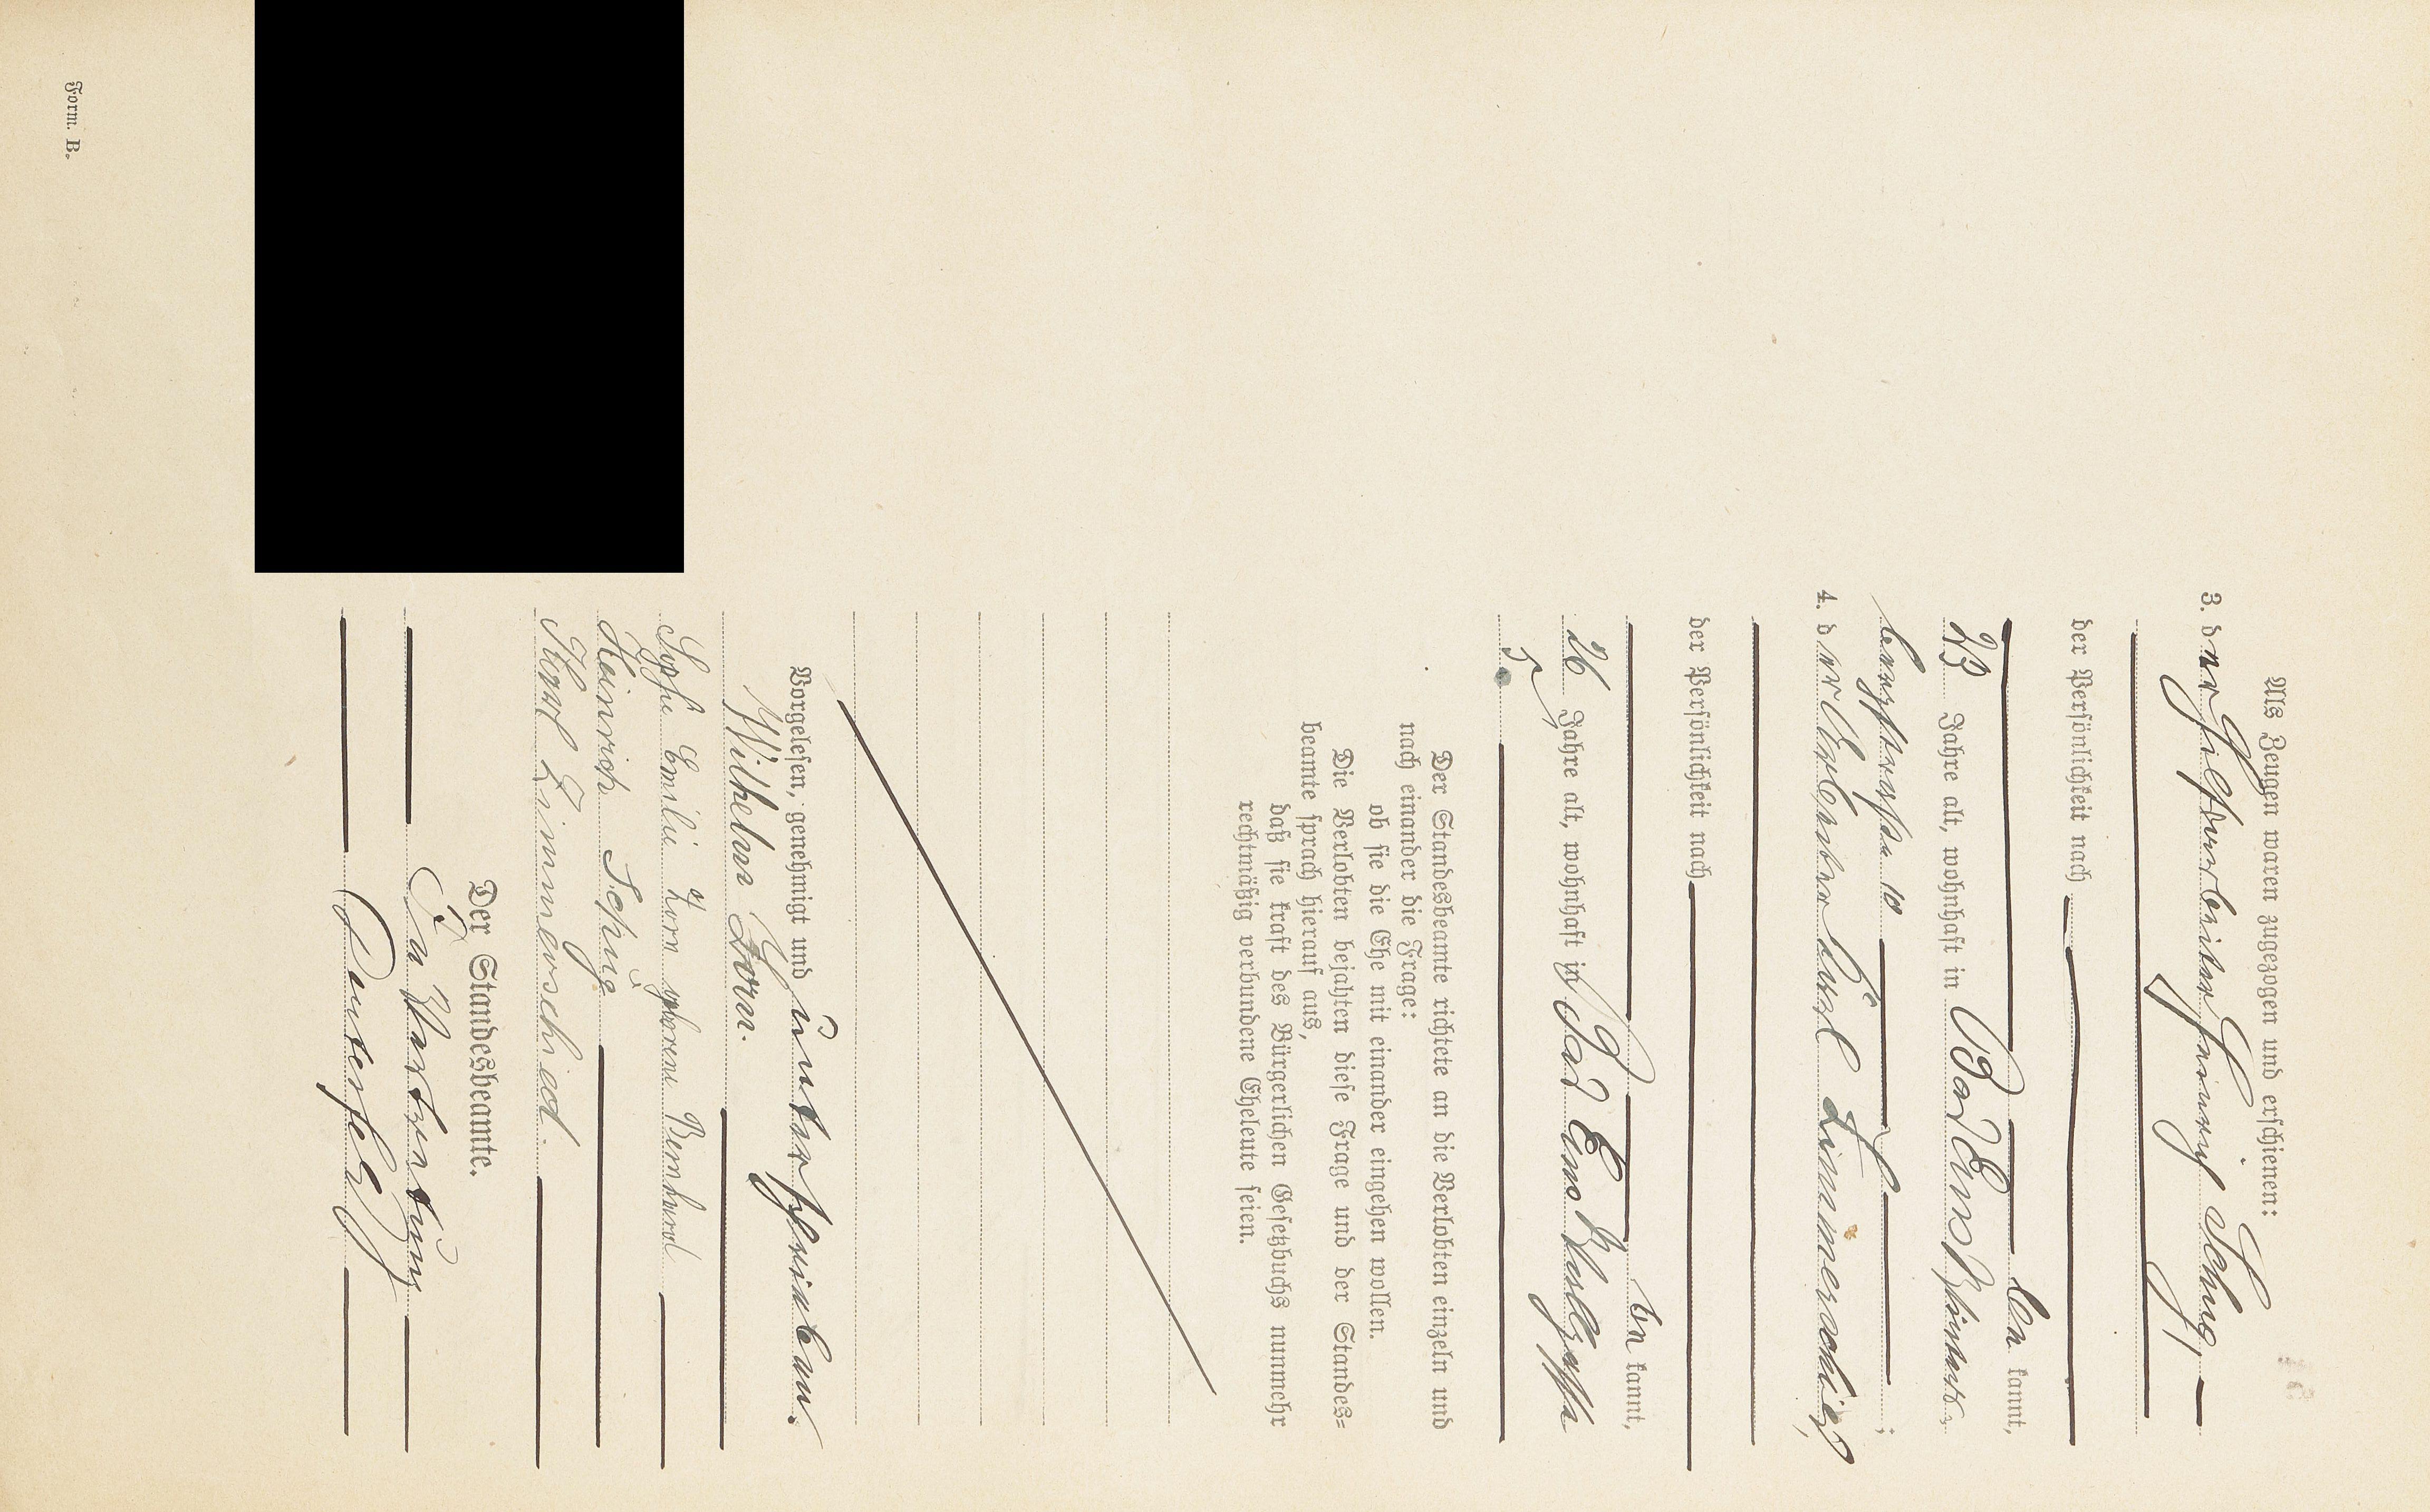 Als Zeugen waren zugezogen und erschienen:
3. der Hilfsarbeiter Heinrich Schug,
der Persönlichkeit nach
be kannt,
23 Jahre alt, wohnhaft in Bad Ems
bergstrasse 10 ;
4. der Arbeiter Karl Zimmerschied,
der Persönlichkeit nach
be kannt,
26 Jahre alt, wohnhaft in Bad Ems
5.
Der Standesbeamte richtete an die Verlobten einzeln und
nach einander die Frage:
ob sie die Ehe mit einander eingehen wollen.
Die Verlobten bejahten diese Frage und der Standes-
beamte sprach hierauf aus,
daß sie kraft des Bürgerlichen Gesetzbuchs nunmehr
rechtmäßig verbundene Eheleute seien.
Vorgelesen, genehmigt und unterschrieben.
Wilhelm Horn.
Sophie Emilie Horn geborene Bernhard
Heinrich Schug
Karl Zimmerschied.
Der Standesbeamte.
In Vertretung
Form. B.